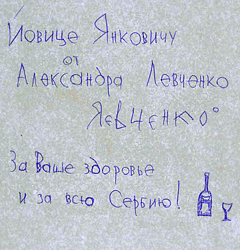 Йовице Янковичу
от
Александра Левченко
Левченко
За Ваше здоровье
и за всю Сербию!